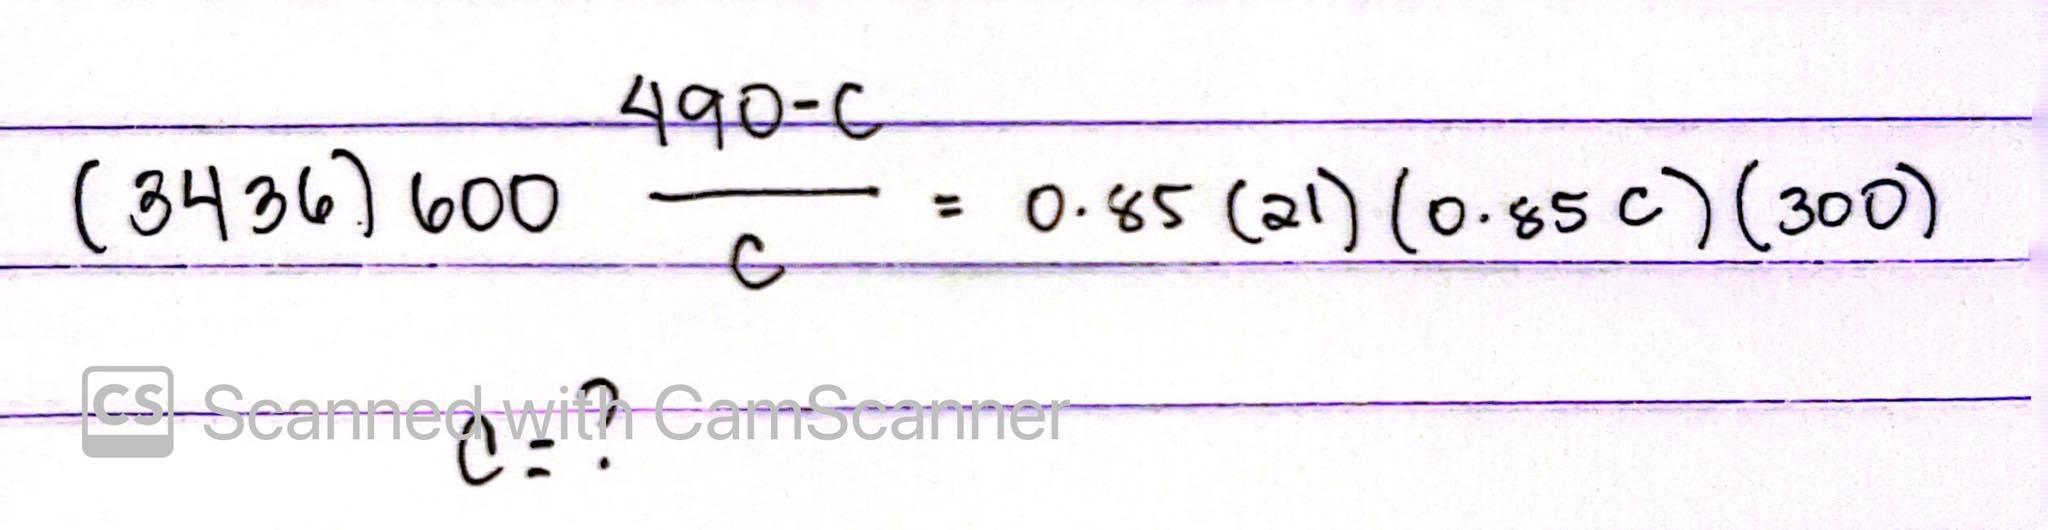 (3436) 600 490-C / C = 0.85 (21) (0.85 C) (300)
CS Scanned with CamScanner
C = ?